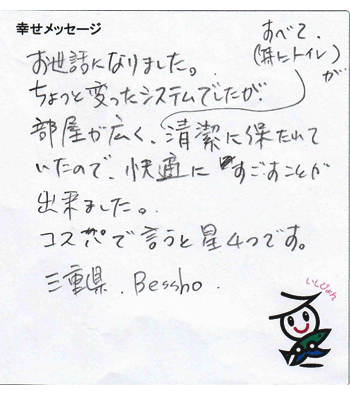 幸せメッセージ
すべて、
(特にトイレ)が
お世話になりました。
ちょっと変ったシステムでしたが、
部屋が広く、清潔に保たれて
いたので、快適にすごすことが
出来ました。
コスパで言うと星4つです。
三重県. Bessho.
いしぴょん